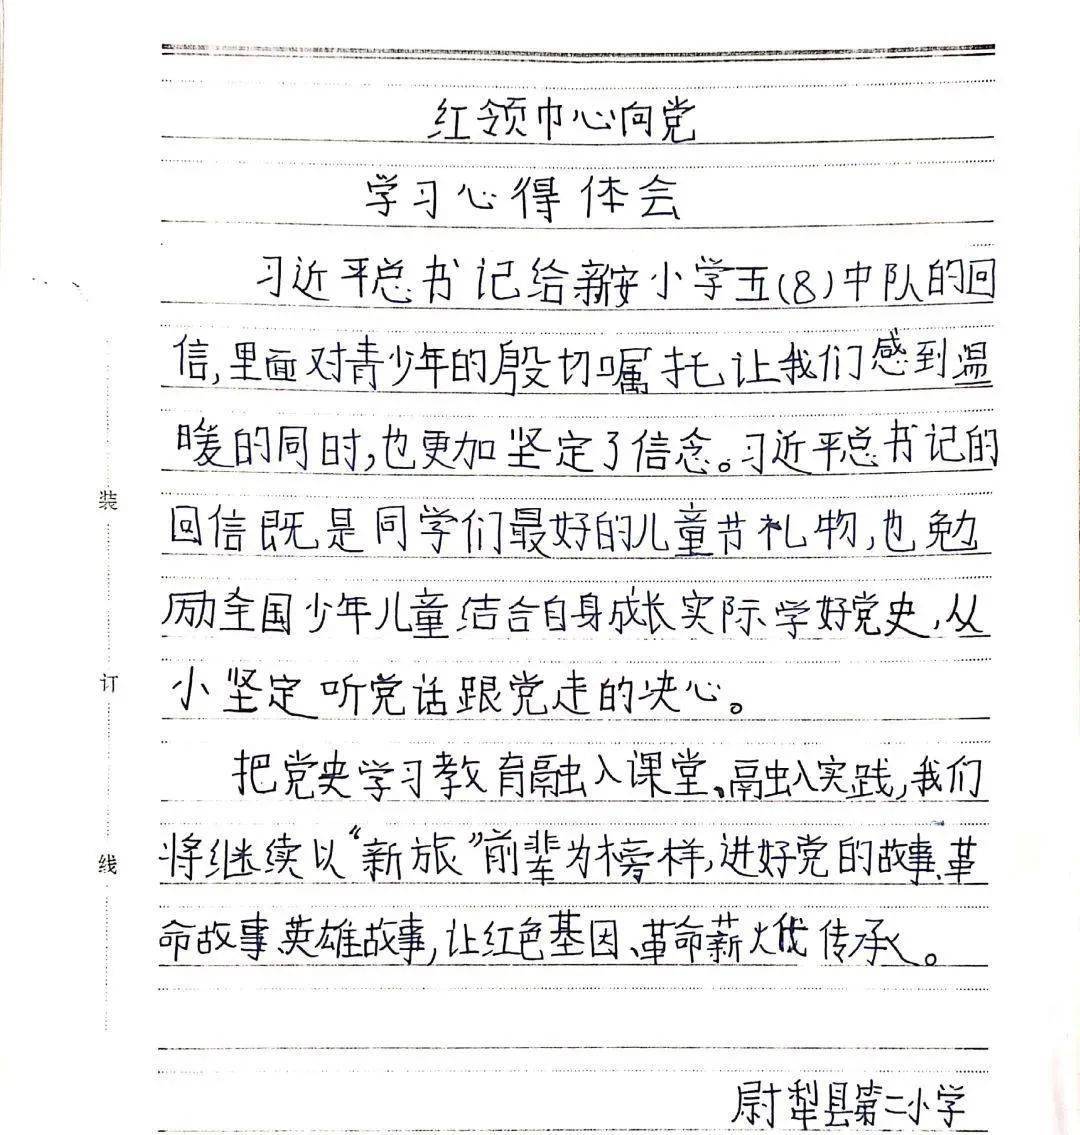 红领巾心向党
学习心得体会
习近平总书记给新安小学五(8)中队的回
信,里面对青少年的殷切嘱托让我们感到温
暖的同时,也更加坚定了信念。习近平总书记的
回信既是同学们最好的儿童节礼物,也勉
励全国少年儿童结合自身成长实际学好党史,从
小坚定听党话跟党走的决心。
把党史学习教育融入课堂、融入实践,我们
将继续以“新旅”前辈为榜样,进好党的故事、革
命故事、英雄故事,让红色基因、革命薪火代传承。
尉犁县第二小学
装
订
线